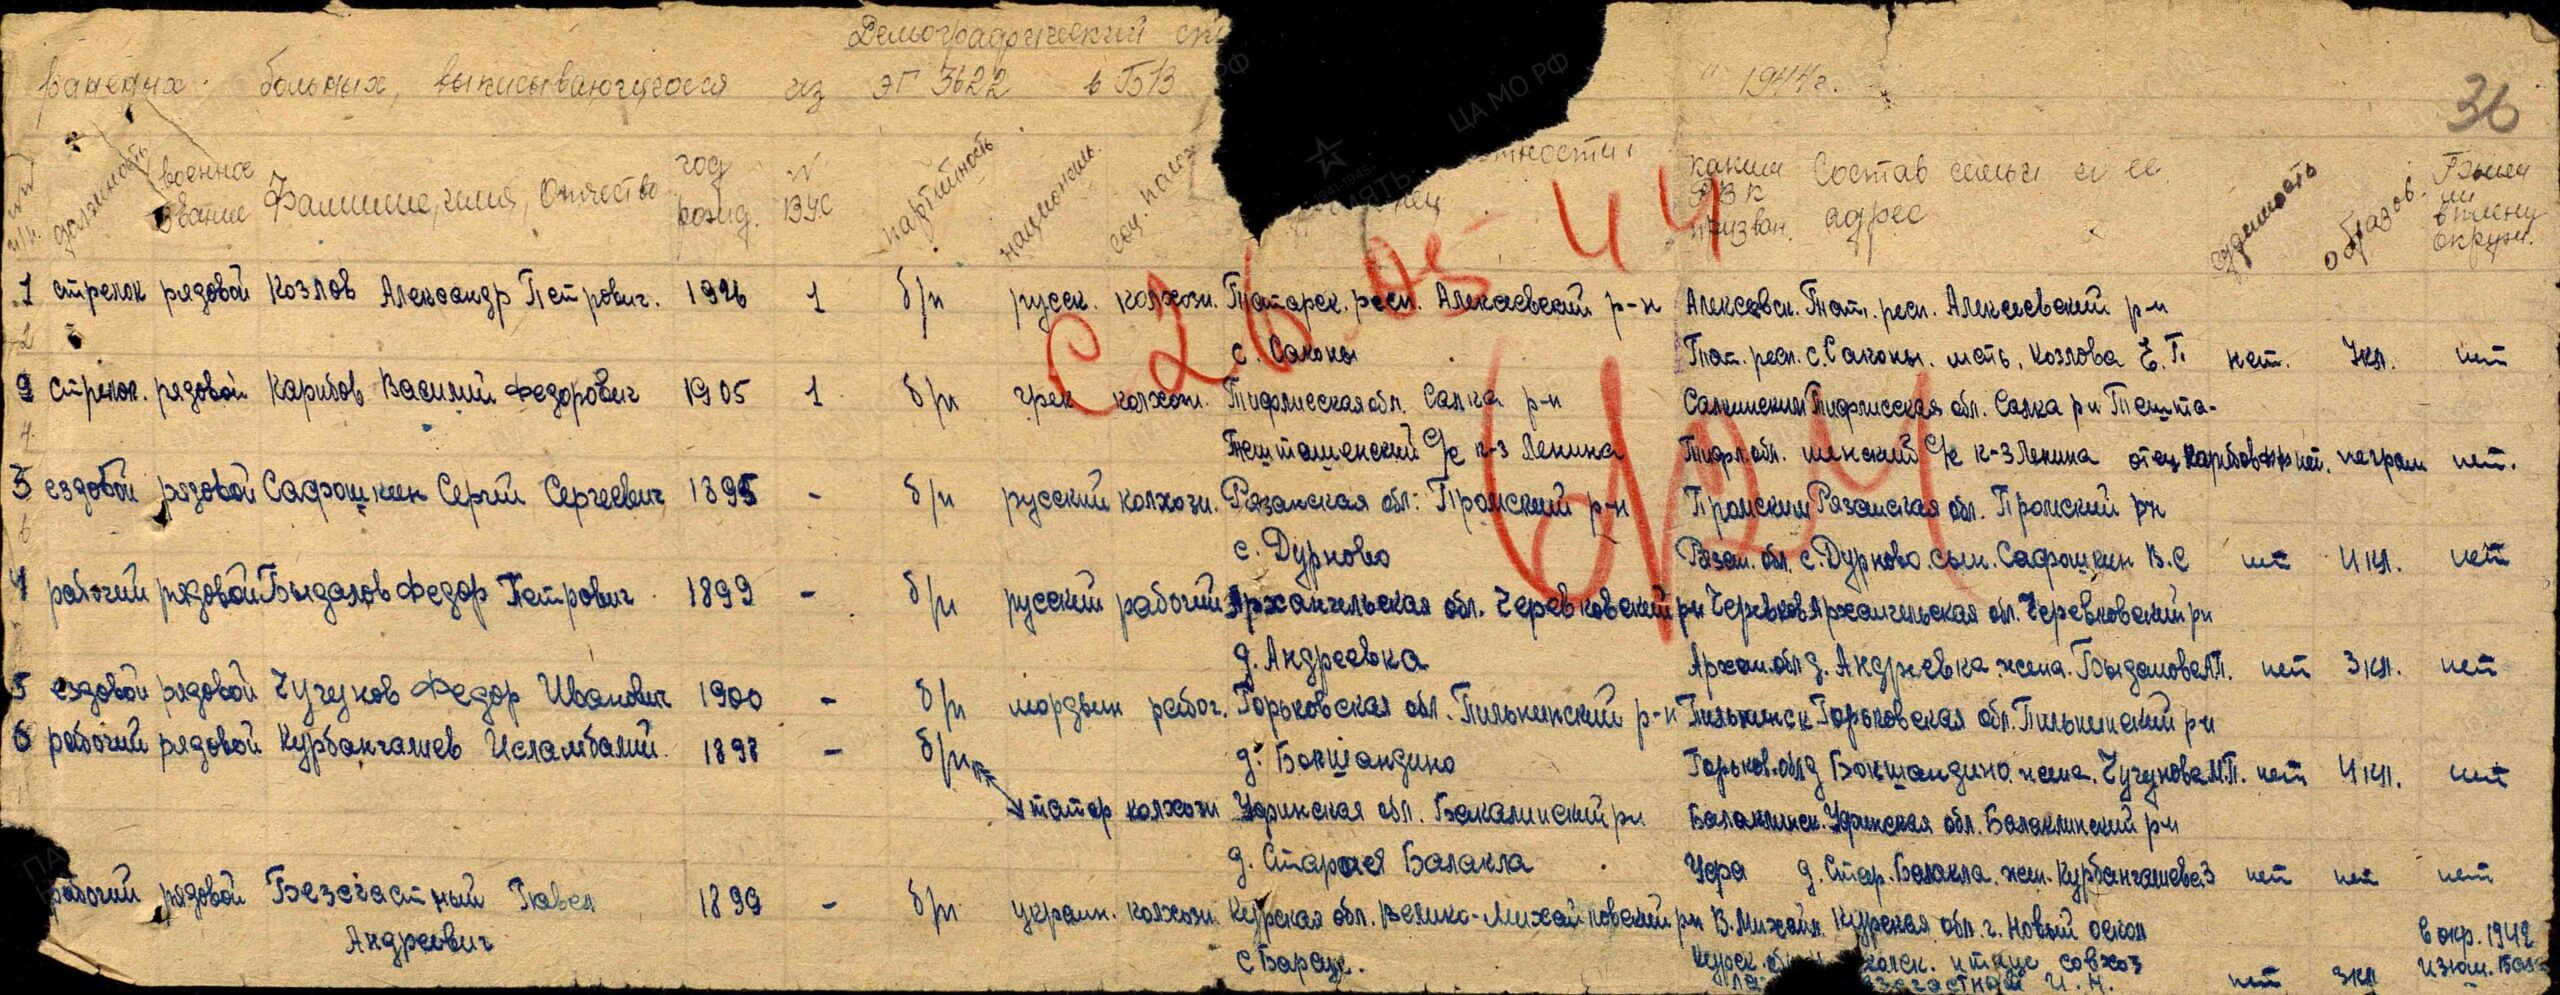 Демографический
раненых больных, выписывающихся из ЭГ 3622 в БВ " 1944 г.
36
№ п/п. должность военное звание Фамилия, имя, Отчество год рожд. № ВУС партийность национальн. соц. полож каким РВК призван. Состав семьи и ее адрес судимость образов. Был ли в плену окруж.
С 26.05 44
1 стрелок рядовой Козлов Александр Петрович. 1926 1 б/п русск. колхозн. Татарск. респ. Алексеевский р-н Алексеевск. Тат. респ. Алексеевский р-н
2 с. Саконы Тат. респ. с. Саконы. мать, Козлова Е.П нет. 7кл. нет
2 стрелок. рядовой Карибов Василий Федорович 1905 1 б/п грек колхозн. Тифлисская обл. Салка р-н Салкинским Тифлисская обл. Салка р-н Тешта-
4. Тешташенский С/с к-з Ленина Тифл. обл. шенский С/с к-з Ленина отец Карибов нет. неграм нет.
3 ездовой рядовой Сафошкин Сергей Сергеевич 1895 - б/п русский колхозн. Рязанская обл. Пронский р-н Пронским Рязанская обл. Пронский рн
6 с. Дурново Рязан. обл. с. Дурново. сын. Сафошкин В.С нет 4 кл. нет
4 рабочий рядовой Выдалов Федор Петрович 1899 - б/п русский рабочий Архангельская обл. Черевковский рн Черевков Архангельская обл. Черевковский рн
д. Андреевка Архан. обл д. Андреевка. жена. нет 3 кл. нет
5 ездовой рядовой Чугунов Федор Иванович 1900 - б/п мордвин рабоч. Горьковская обл. Пильнинский р-н Пильнинск Горьковская обл. Пильнинский рн
6 рабочий рядовой Курбангалиев Исламбалий. 1898 - б/п д. Бокшандино Горьков. обл д Бокшандино. жена. Чугунова М.П. нет 4 кл. нет
татар колхозн Уфинская обл. Бакалинский рн Балаклинск. Уфинская обл. Балаклинский рн
д. Старая Балакла Уфа д. Стар. Балакла. жен. Курбангалиева З нет нет нет
рабочий рядовой Безсчастный Павел 1899 - б/п украин. колхозн. Курская обл. Велико-Михайловский рн В. Михайл. Курская обл. г. Новый оскол
Андреевич с Барсук. Курск. совхоз в окр. 1942
И. Н. нет 3кл Изюм.